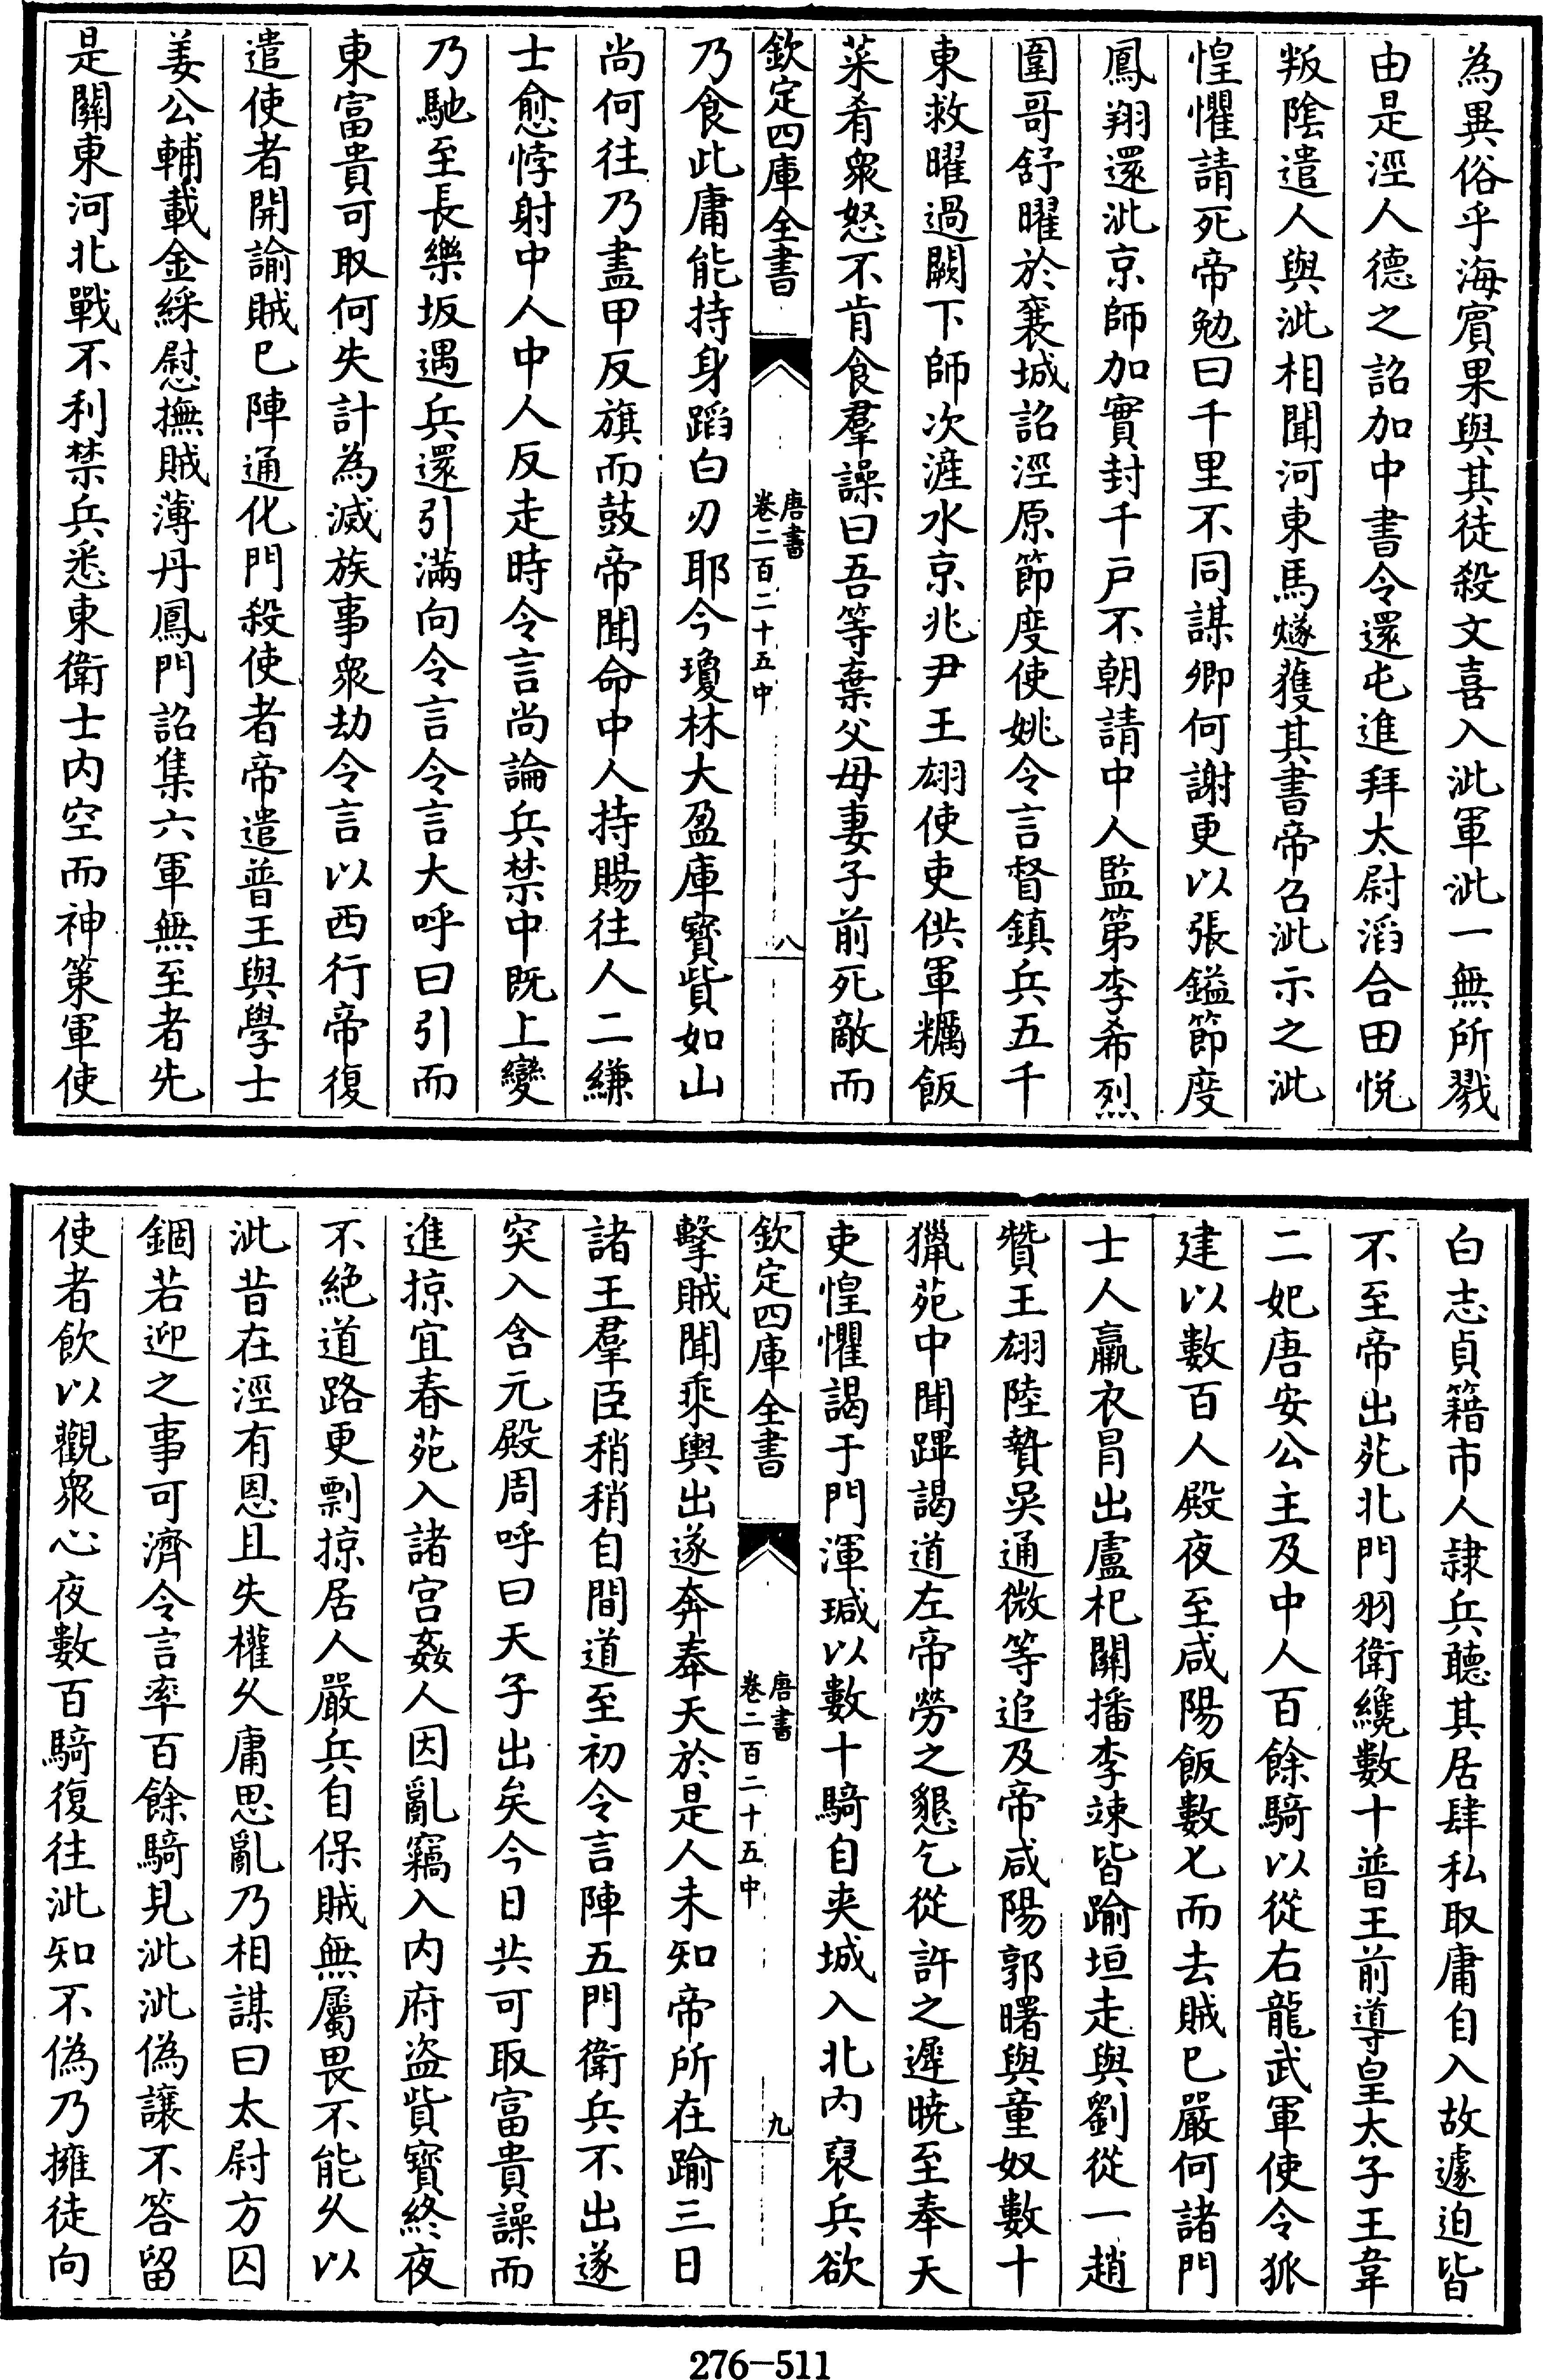 為異俗乎海賓果與其徒殺文喜入泚軍泚一無所戮
由是涇人德之詔加中書令還屯進拜太尉滔合田悦
叛陰遣人與泚相聞河東馬燧獲其書帝召泚示之泚
惶懼請死帝勉曰千里不同謀卿何謝更以張鎰節度
鳳翔還泚京師加實封千戸不朝請中人監第李希烈
圍哥舒曜於襄城詔涇原節度使姚令言督鎮兵五千
東救曜過闕下師次滻水京兆尹王翃使吏供軍糲飯
菜肴衆怒不肯食羣譟曰吾等棄父母妻子前死敵而
欽定四庫全書
唐書
卷二百二十五中
八
乃食此庸能持身蹈白刃耶今瓊林大盈庫寳貲如山
尚何往乃盡甲反旗而鼓帝聞命中人持賜往人二縑
士愈悖射中人中人反走時令言尚論兵禁中既上變
乃馳至長樂坂遇兵還引滿向令言令言大呼曰引而
東富貴可取何失計為滅族事衆劫令言以西行帝復
遣使者開諭賊已陣通化門殺使者帝遣普王與學士
姜公輔載金綵慰撫賊薄丹鳳門詔集六軍無至者先
是關東河北戰不利禁兵悉東衛士内空而神策軍使
白志貞籍市人隷兵聽其居肆私取庸自入故遽迫皆
不至帝出苑北門羽衛纔數十普王前導皇太子王韋
二妃唐安公主及中人百餘騎以從右龍武軍使令狐
建以數百人殿夜至咸陽飯數匕而去賊已嚴何諸門
士人羸衣冐出盧杞關播李竦皆踰垣走與劉從一趙
贊王翃陸贄吳通微等追及帝咸陽郭曙與童奴數十
獵苑中聞蹕謁道左帝勞之懇乞從許之遲曉至奉天
吏惶懼謁于門渾瑊以數十騎自夾城入北内裒兵欲
欽定四庫全書
唐書
卷二百二十五中
九
擊賊聞乘輿出遂奔奉天於是人未知帝所在踰三日
諸王羣臣稍稍自間道至初令言陣五門衛兵不出遂
突入含元殿周呼曰天子出矣今日共可取富貴譟而
進掠宜春苑入諸宫姦人因亂竊入内府盗貲寳終夜
不絶道路更剽掠居人嚴兵自保賊無屬畏不能久以
泚昔在涇有恩且失權久庸思亂乃相謀曰太尉方囚
錮若迎之事可濟令言率百餘騎見泚泚偽讓不答留
使者飲以觀衆心夜數百騎復往泚知不偽乃擁徒向
276-511